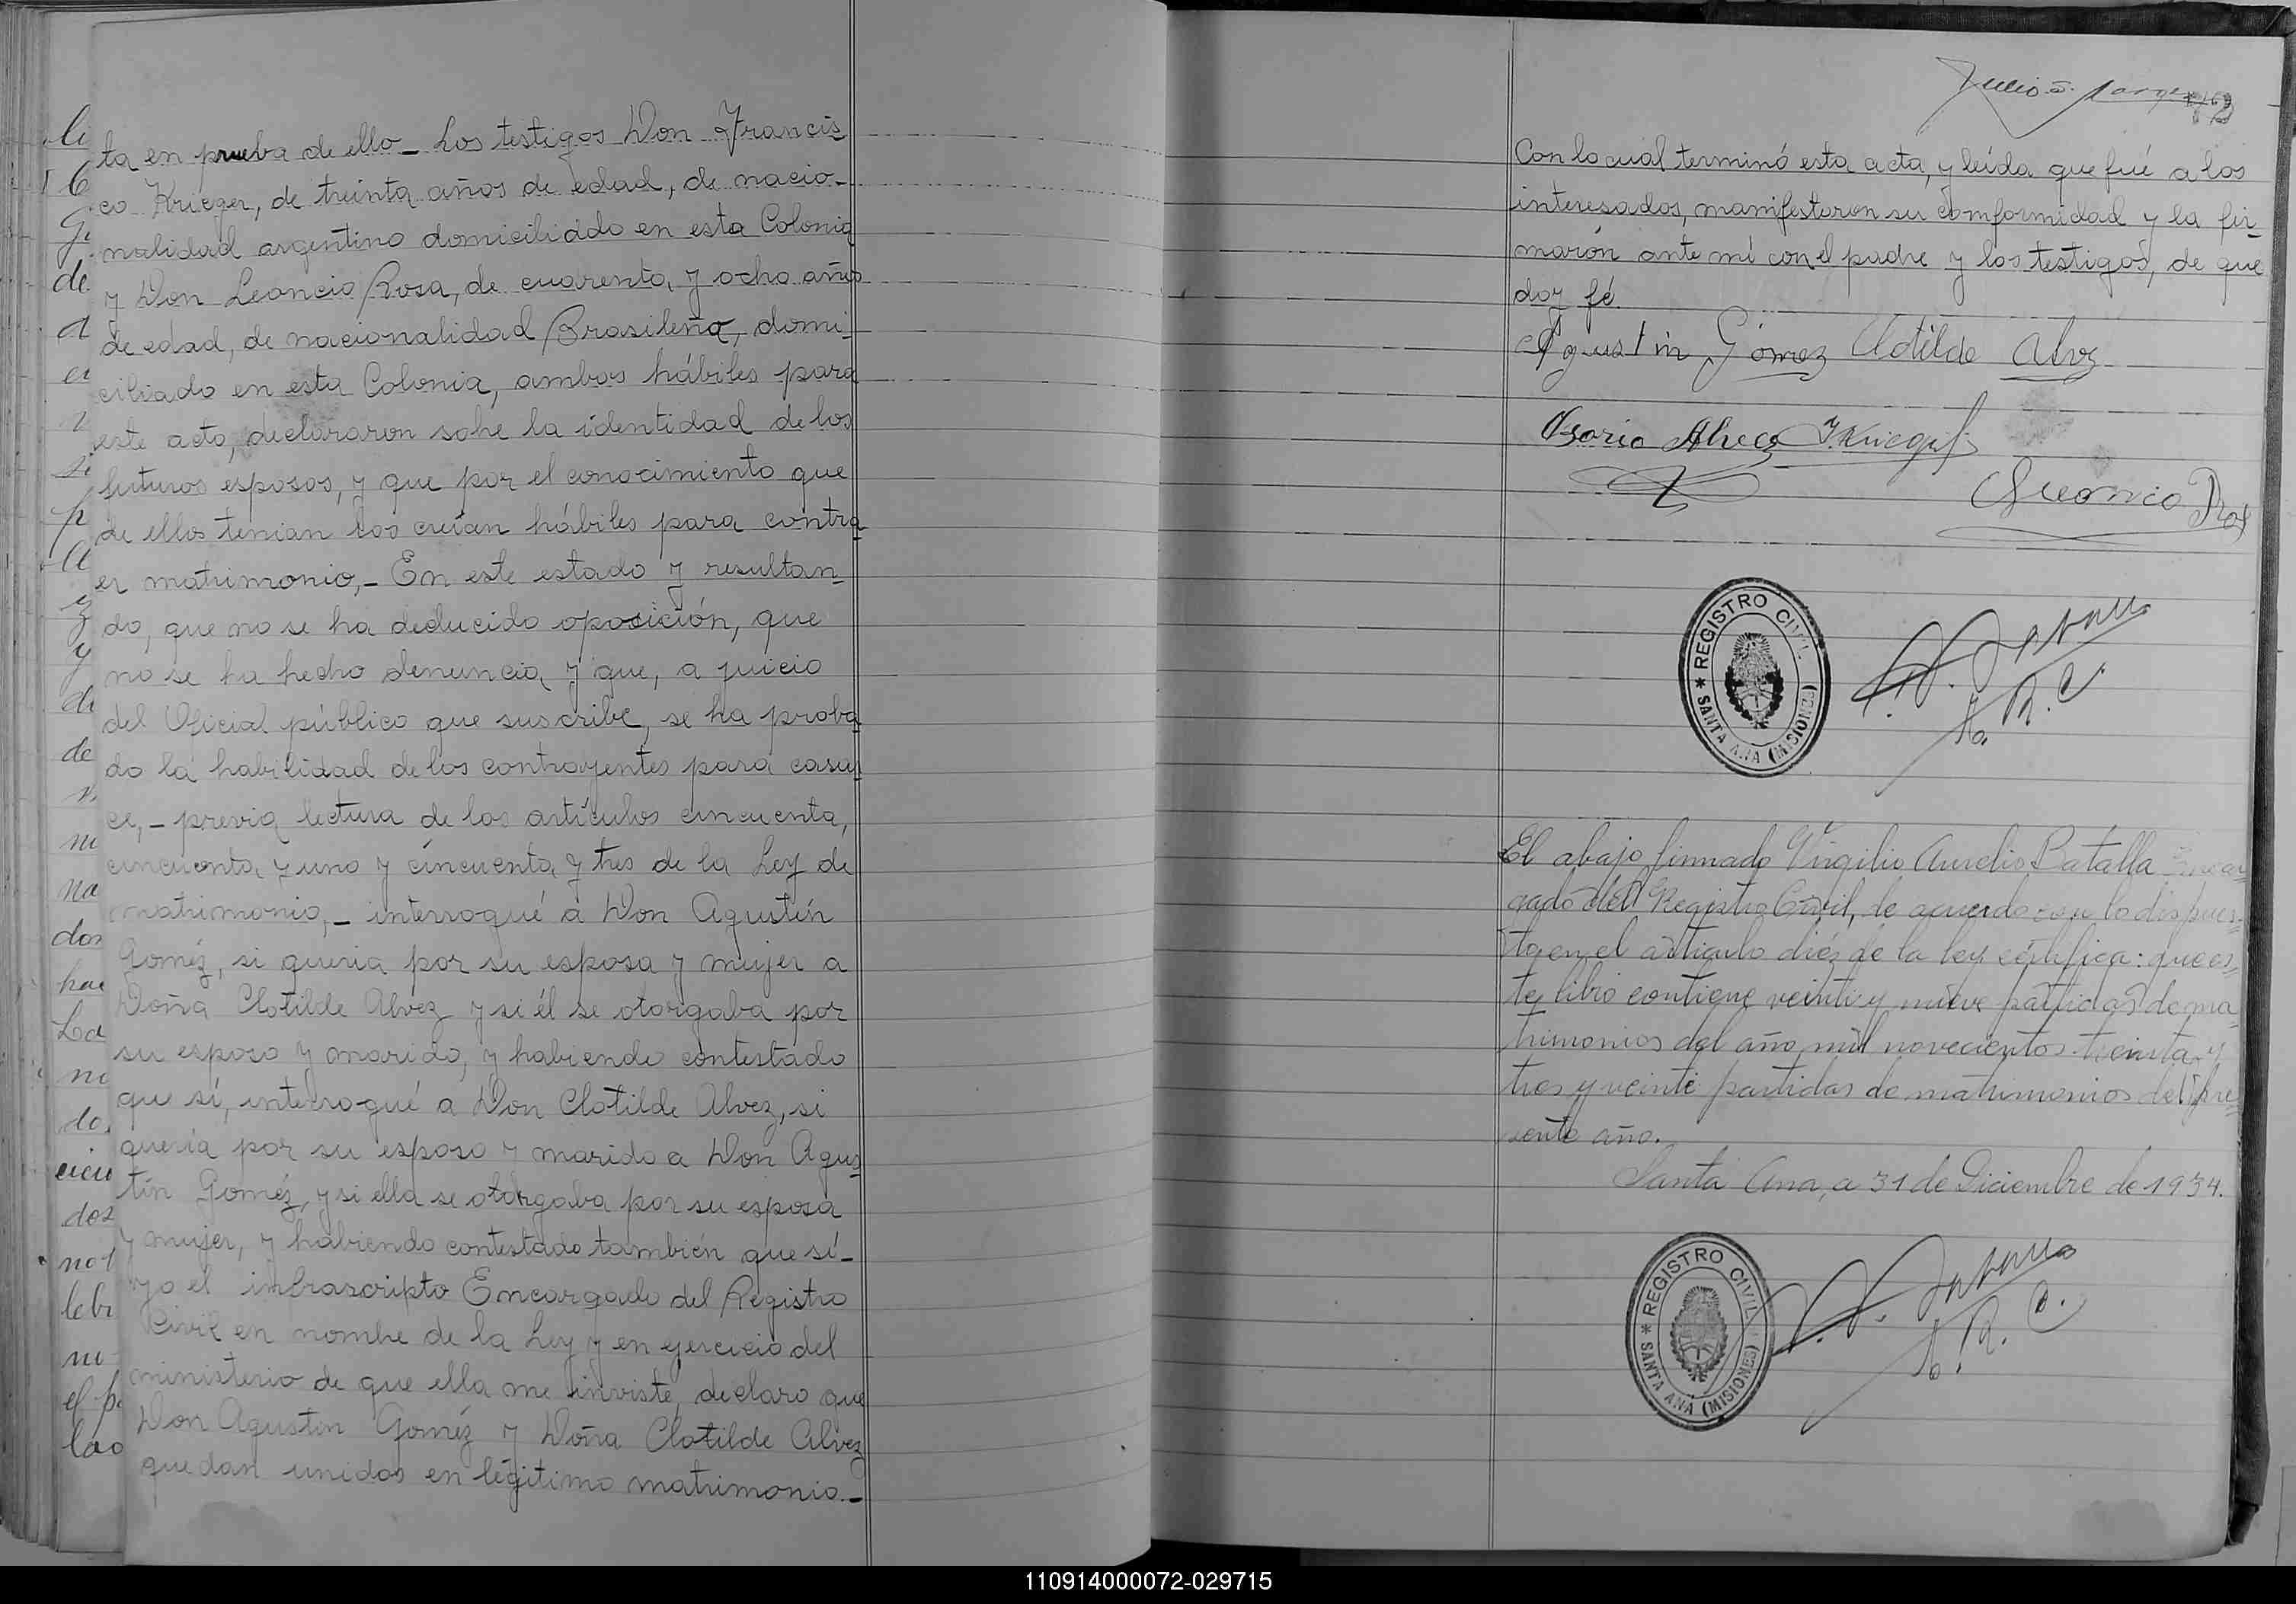 ta en prueba de ello_ Los testigos Don Francis-
co Krieger, de treinta años de edad, de nacio-
nalidad argentino domiciliado en esta Colonia
y Don Leoncio Rosa, de cuarenta y ocho años
de edad, de nacionalidad Brasileña, domi-
ciliado en esta Colonia, ambos hábiles para
este acto, declararon sobre la identidad de los
futuros esposos, y que por el conocimiento que
de ellos tenian los creían hábiles para contra-
er matrimonio,_ En este estado y resultan-
do, que no se ha deducido oposición, que
no se ha hecho denuncia y que, a juicio
del Oficial público que suscribe, se ha proba-
do la habilidad de los contrayentes para casar-
ce,_ previa lectura de los artículos cincuenta,
cincuenta y uno y cincuenta y tres de la Ley de
matrimonio,_ interrogué a Don Agustín
Goméz, si queria por su esposa y mujer a
Doña Clotilde Alvez y si él se otorgaba por
su esposo y marido, y habiendo contestado
que sí, interrogué a Don Clotilde Alvez, si
quería por su esposo y marido a Don Agus-
tín Goméz, y si ella se otorgaba por su esposa
y mujer, y habiendo contestado también que sí-
yo el infrascripto Encargado del Registro
Civil en nombre de la Ley y en ejercicio del
ministerio de que ella me inviste, declaro que
Don Agustin Goméz y Doña Clotilde Alvez
quedan unidos en légitimo matrimonio._
Con lo cual terminó esta acta, y leída que fué a los
interesados, manifestaron su comformidad y la fir-
marón ante mí con el padre y los testigos, de que
doy fé.
Agustín Gómez Clotilde Alvez
Osorio Alvez F. Krieger
Leoncio Rosa
REGISTRO CIVIL
* SANTA ANA (MISIONES)
El abajo firmado Virgilio Aurelio Batalla Encar-
gado del Registro Civil, de acuerdo con lo dispues-
to en el artículo diéz de la ley cértifica: que es-
te libro contiene veinti y nueve partidas de ma-
trimonios del año mil novecientos treinta y
tres y veinte partidas de matrimonios del pre-
sente año.
Santa Ana, a 31 de Diciembre de 1934.
REGISTRO CIVIL
* SANTA ANA (MISIONES)
110914000072-029715